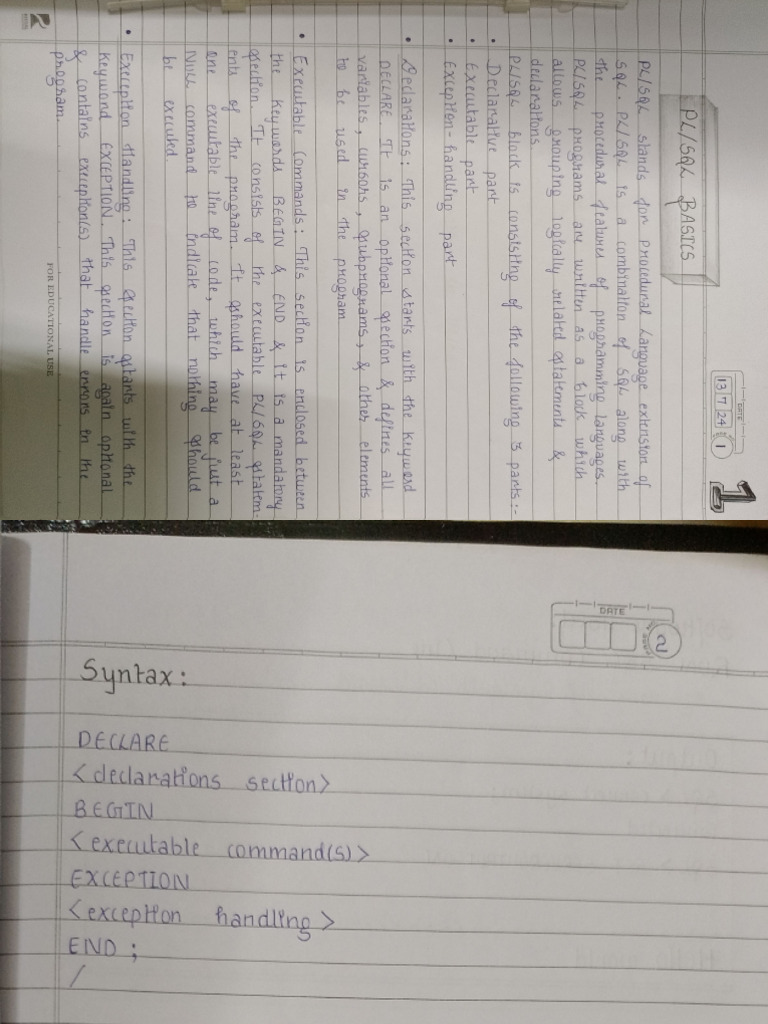 DATE
13 7 24
1
1
PL/SQL BASICS
PL/SQL stands for procedural Language extension of
SQL. PL/SQL is a combination of SQL along with
the procedural features of programming languages.
PL/SQL programs are written as a block which
allows grouping logically related statements &
declarations.
PL/SQL block is consisting of the following 3 parts:-
• Declarative part
• Executable part
• Exception-handling part
• Declarations: This section starts with the keyword
DECLARE. It is an optional section & defines all
variables, cursors, subprograms, & other elements
to be used in the program
• Executable Commands: This section is enclosed between
the keywords BEGIN & END & it is a mandatory
section. It consists of the executable PL/SQL statem-
ents of the program. It should have at least
one executable line of code, which may be just a
NULL command to indicate that nothing should
be executed
• Exception Handling: This section starts with the
keyword EXCEPTION. This section is again optional
& contains exception(s) that handle errors in the
program.
FOR EDUCATIONAL USE
DATE
2
Syntax:
DECLARE
<declarations section>
BEGIN
<executable command(s)>
EXCEPTION
<exception handling>
END;
/